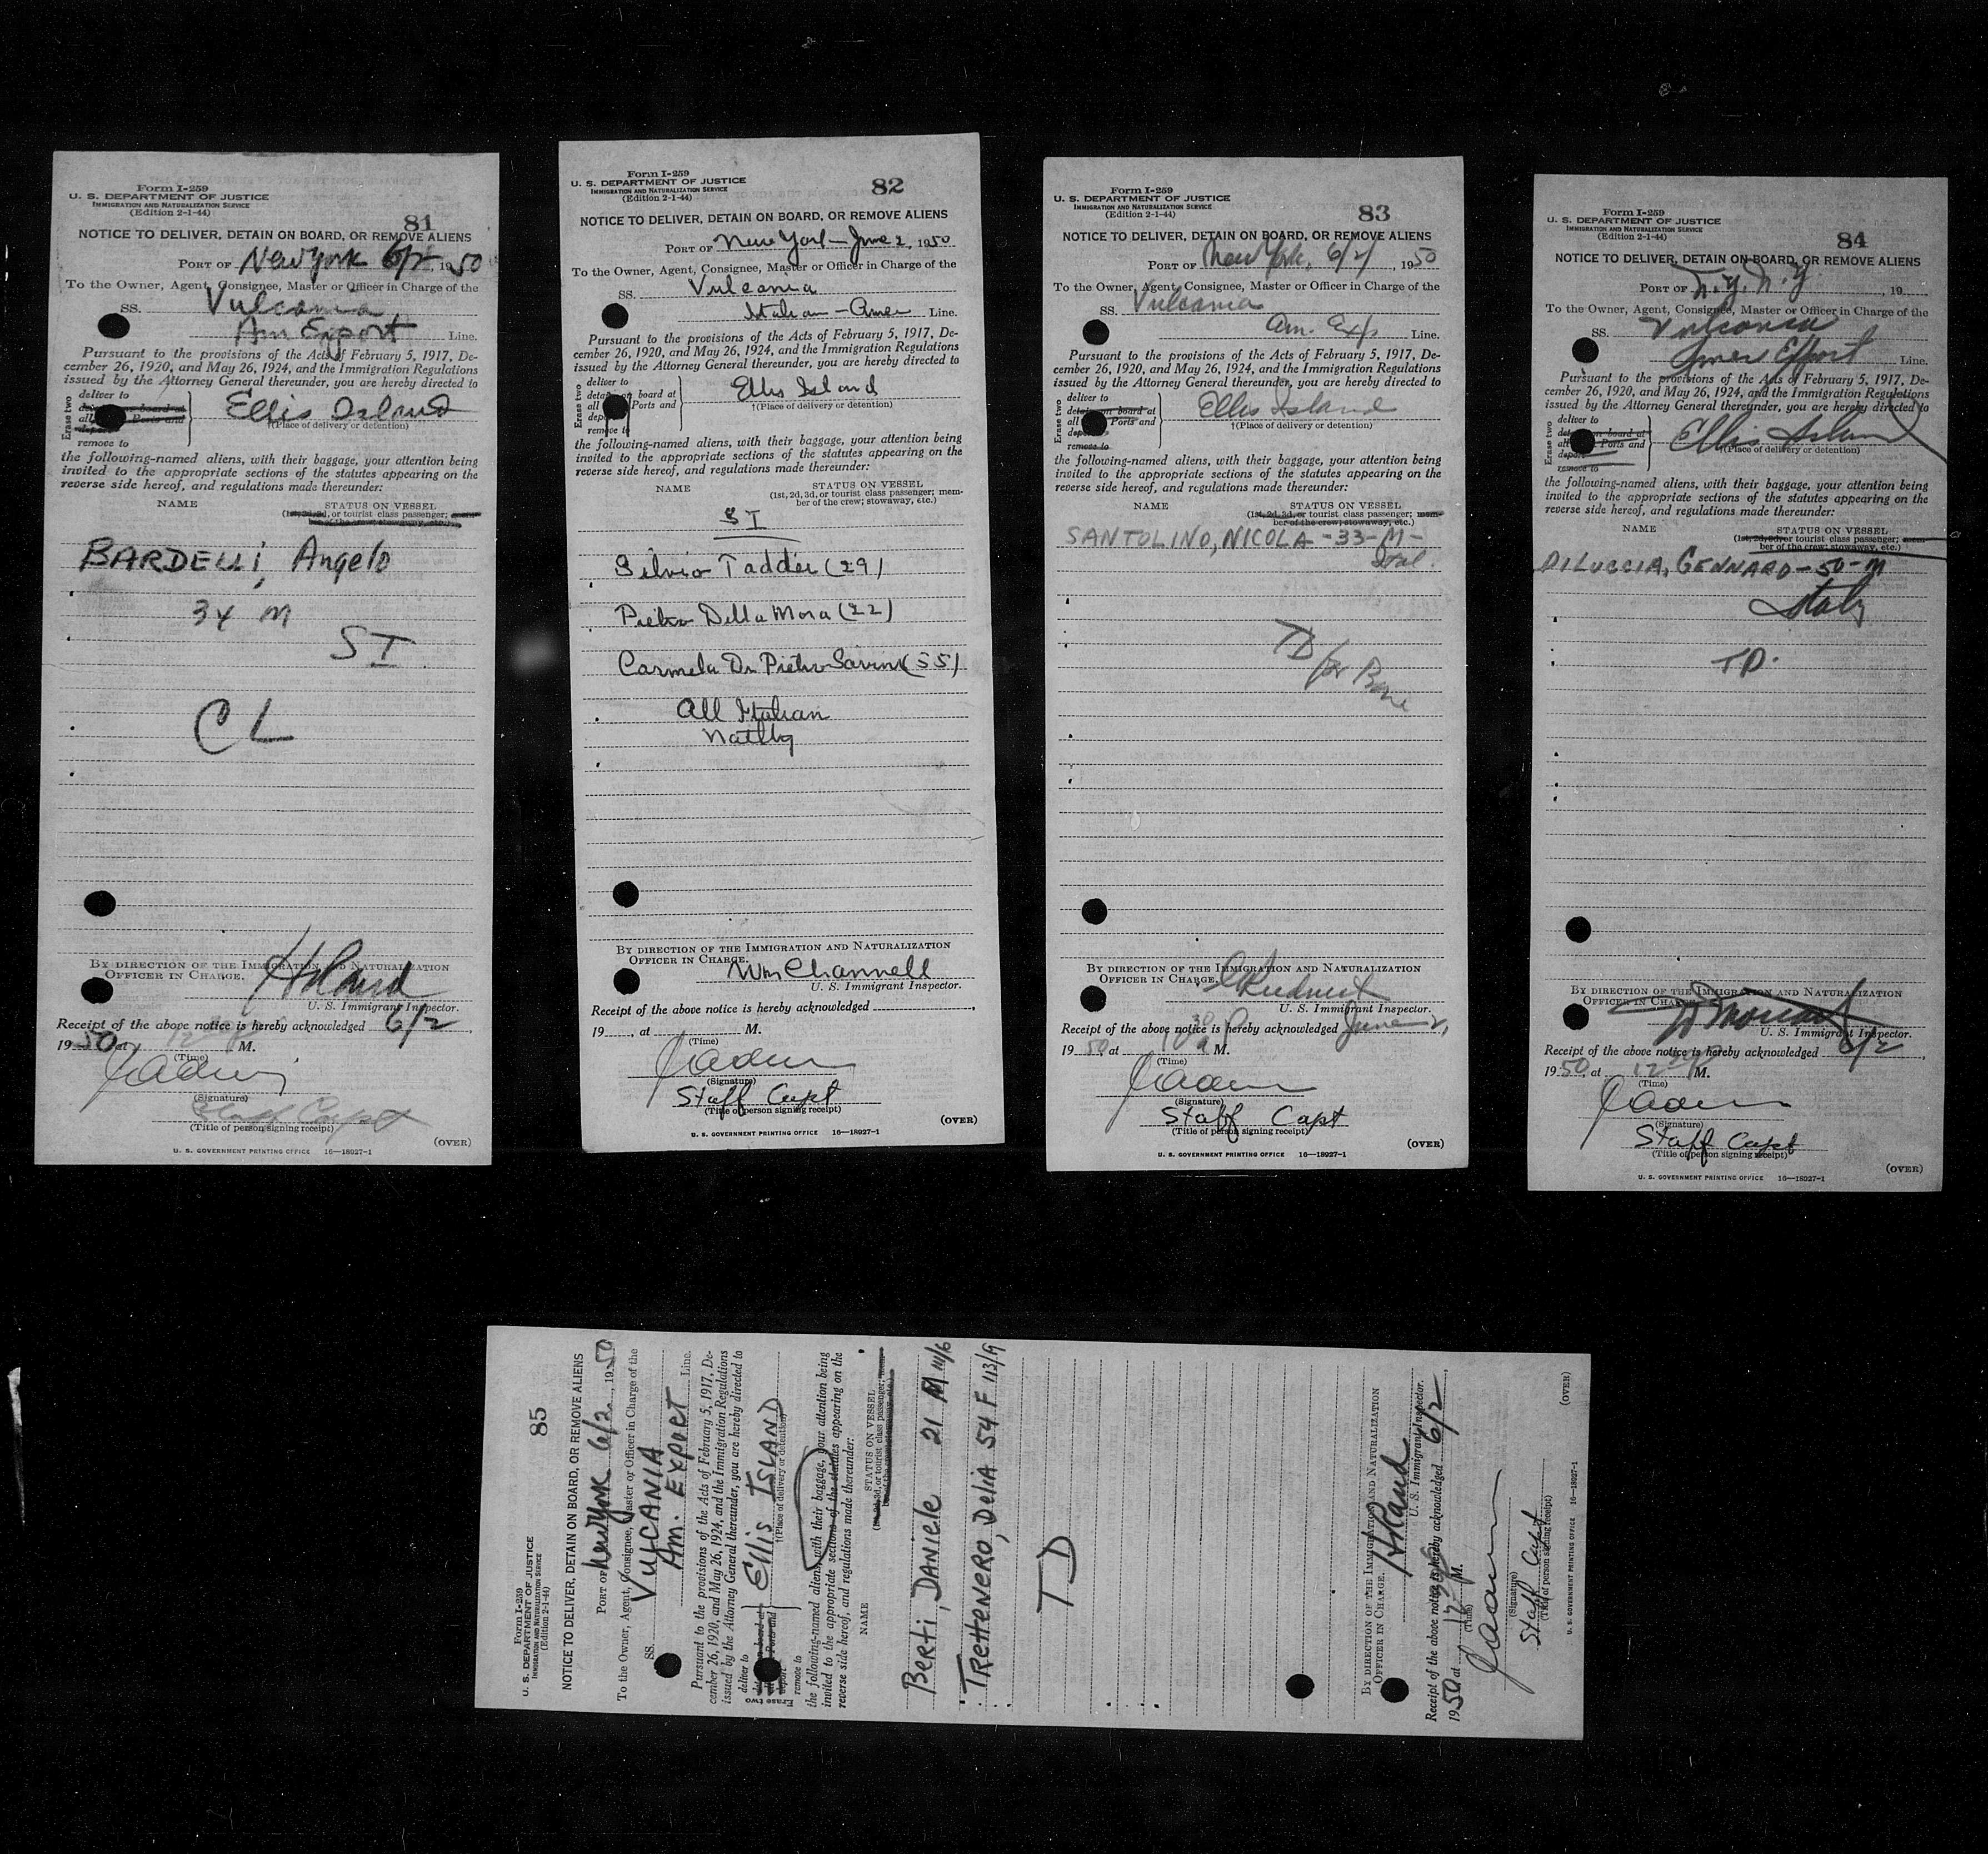 Form I-259
U. S. DEPARTMENT OF JUSTICE
IMMIGRATION AND NATURALIZATION SERVICE
(Edition 2-1-44)
81
NOTICE TO DELIVER, DETAIN ON BOARD, OR REMOVE ALIENS
PORT OF New York 6/2, 1950
To the Owner, Agent, Consignee, Master or Officer in Charge of the
SS. Vulcania
Am Export Line.
Pursuant to the provisions of the Acts of February 5, 1917, De-
cember 26, 1920, and May 26, 1924, and the Immigration Regulations
issued by the Attorney General thereunder, you are hereby directed to
Erase two
deliver to
on board at
all Ports and
remove to
Ellis Island
†(Place of delivery or detention)
the following-named aliens, with their baggage, your attention being
invited to the appropriate sections of the statutes appearing on the
reverse side hereof, and regulations made thereunder:
NAME STATUS ON VESSEL
(1st, 2d, 3d, or tourist class passenger; mem-
ber of the crew; stowaway, etc.)
BARDELLI, Angelo
34 M
SI
CL
BY DIRECTION OF THE IMMIGRATION AND NATURALIZATION
OFFICER IN CHARGE.
U. S. Immigrant Inspector.
Receipt of the above notice is hereby acknowledged 6/2
1950 at 12 M.
(Time)
(Signature)
Staff Capt
(Title of person signing receipt)
(OVER)
U. S. GOVERNMENT PRINTING OFFICE 16—18927-1
Form I-259
U. S. DEPARTMENT OF JUSTICE
IMMIGRATION AND NATURALIZATION SERVICE
(Edition 2-1-44)
82
NOTICE TO DELIVER, DETAIN ON BOARD, OR REMOVE ALIENS
PORT OF New York June 2, 1950
To the Owner, Agent, Consignee, Master or Officer in Charge of the
SS. Vulcania
Italian-Amer Line.
Pursuant to the provisions of the Acts of February 5, 1917, De-
cember 26, 1920, and May 26, 1924, and the Immigration Regulations
issued by the Attorney General thereunder, you are hereby directed to
Erase two
deliver to
detain on board at
all Ports and
remove to
Ellis Island
†(Place of delivery or detention)
the following-named aliens, with their baggage, your attention being
invited to the appropriate sections of the statutes appearing on the
reverse side hereof, and regulations made thereunder:
NAME STATUS ON VESSEL
(1st, 2d, 3d, or tourist class passenger; mem-
ber of the crew; stowaway, etc.)
SI
Silvio Taddei (29)
Pietro Della Mora (22)
Carmela Di Pietro Savini (55)
All Italian
Natlty
BY DIRECTION OF THE IMMIGRATION AND NATURALIZATION
OFFICER IN CHARGE.
Wm Channell
U. S. Immigrant Inspector.
Receipt of the above notice is hereby acknowledged
19 , at M.
(Time)
(Signature)
Staff Capt
(Title of person signing receipt)
(OVER)
U. S. GOVERNMENT PRINTING OFFICE 16—18927-1
Form I-259
U. S. DEPARTMENT OF JUSTICE
IMMIGRATION AND NATURALIZATION SERVICE
(Edition 2-1-44)
83
NOTICE TO DELIVER, DETAIN ON BOARD, OR REMOVE ALIENS
PORT OF New York, 6/2/, 1950
To the Owner, Agent, Consignee, Master or Officer in Charge of the
SS. Vulcania
Am. Exp Line.
Pursuant to the provisions of the Acts of February 5, 1917, De-
cember 26, 1920, and May 26, 1924, and the Immigration Regulations
issued by the Attorney General thereunder, you are hereby directed to
Erase two
deliver to
detain on board at
all Ports and
remove to
Ellis Island
†(Place of delivery or detention)
the following-named aliens, with their baggage, your attention being
invited to the appropriate sections of the statutes appearing on the
reverse side hereof, and regulations made thereunder:
NAME STATUS ON VESSEL
(1st, 2d, 3d, or tourist class passenger; mem-
ber of the crew; stowaway, etc.)
SANTOLINO, NICOLA - 33 - M -
Ital.
TD for
BY DIRECTION OF THE IMMIGRATION AND NATURALIZATION
OFFICER IN CHARGE.
U. S. Immigrant Inspector.
Receipt of the above notice is hereby acknowledged June 2,
1950, at M.
(Time)
(Signature)
Staff Capt
(Title of person signing receipt)
(OVER)
U. S. GOVERNMENT PRINTING OFFICE 16—18927-1
Form I-259
U. S. DEPARTMENT OF JUSTICE
IMMIGRATION AND NATURALIZATION SERVICE
(Edition 2-1-44)
84
NOTICE TO DELIVER, DETAIN ON BOARD, OR REMOVE ALIENS
PORT OF N.Y. N.Y. , 19
To the Owner, Agent, Consignee, Master or Officer in Charge of the
SS. Vulcania
Amer Export Line.
Pursuant to the provisions of the Acts of February 5, 1917, De-
cember 26, 1920, and May 26, 1924, and the Immigration Regulations
issued by the Attorney General thereunder, you are hereby directed to
Erase two
deliver to
detain on board at
all Ports and
remove to
Ellis Island
†(Place of delivery or detention)
the following-named aliens, with their baggage, your attention being
invited to the appropriate sections of the statutes appearing on the
reverse side hereof, and regulations made thereunder:
NAME STATUS ON VESSEL
(1st, 2d, 3d, or tourist class passenger; mem-
ber of the crew; stowaway, etc.)
DILUCCIA, GENNARO - 50 - M
Italy
TD.
BY DIRECTION OF THE IMMIGRATION AND NATURALIZATION
OFFICER IN CHARGE.
U. S. Immigrant Inspector.
Receipt of the above notice is hereby acknowledged 6/2,
1950, at 12 M.
(Time)
(Signature)
Staff Capt
(Title of person signing receipt)
(OVER)
U. S. GOVERNMENT PRINTING OFFICE 16—18927-1
Form I-259
U. S. DEPARTMENT OF JUSTICE
IMMIGRATION AND NATURALIZATION SERVICE
(Edition 2-1-44)
85
NOTICE TO DELIVER, DETAIN ON BOARD, OR REMOVE ALIENS
PORT OF New York 6/2, 1950
To the Owner, Agent, Consignee, Master or Officer in Charge of the
SS. VULCANIA
Am. Export Line.
Pursuant to the provisions of the Acts of February 5, 1917, De-
cember 26, 1920, and May 26, 1924, and the Immigration Regulations
issued by the Attorney General thereunder, you are hereby directed to
Erase two
deliver to
on board at
Ports and
remove to
Ellis ISLAND
†(Place of delivery or detention)
the following-named aliens, with their baggage, your attention being
invited to the appropriate sections of the statutes appearing on the
reverse side hereof, and regulations made thereunder:
NAME STATUS ON VESSEL
(1st, 2d, 3d, or tourist class passenger; mem-
ber of the crew; stowaway, etc.)
Berti, DANIELE 21 M 111/6
TRETTENERO, Delia 54 F 113/9
TD
BY DIRECTION OF THE IMMIGRATION AND NATURALIZATION
OFFICER IN CHARGE.
U. S. Immigrant Inspector.
Receipt of the above notice is hereby acknowledged 6/2,
1950 at 12 M.
(Time)
(Signature)
Staff Capt
(Title of person signing receipt)
(OVER)
U. S. GOVERNMENT PRINTING OFFICE 16—18927-1